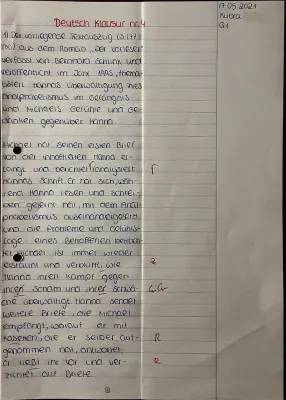 17.05.2021
Kübra
Q1
Deutsch Klausur nr.4
1) Der vorliegende Textauszug (S.177
aus dem Roman „Der Vorleser"
verfasst von Bernhard Schlink und
veröffentlicht im Jahr 1995, thema-
tisiert Hannas Überwältigung ihres
Analphabetismus im Gefängnis
und Michaels Gefühle und Ge-
danken gegenüber Hanna.
Michael hat seinen ersten Brief
von der inhaftierten Hanna er-
langt und analysiert
Hannas Schrift. Er hat sich, wäh-
rend Hanna lesen und schrei-
ben gelernt hat, mit dem Anal-
phabetismus auseinandergesetzt
und die Probleme und
eines Betroffenen
Michael ist immer wieder
erstaunt und verblüfft, wie
Hanna ihren Kampf gegen
ihren Scham und ihrer Schwä-
che überwältigt. Hanna sendet
weitere Briefe, die Michael
empfängt, worauf er mit
Kassetten, die er selber auf-
genommen hat, antwortet.
Er ließt ihr vor und ver-
zichtet auf Briefe.